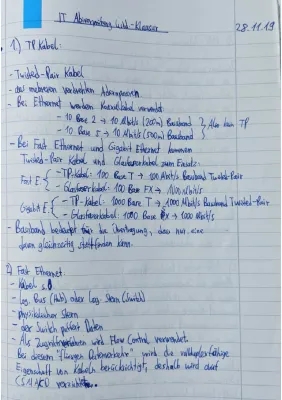 IT
28.11.19
1) TP Kabel:
- Twisted-Pair Kabel
- aus mehreren verdrillten Adernpaaren
- Bei Ethernet werden Koaxialkabel verwendet:
- 10 Base 2 → 10 Mbit/s (200m) Baseband } Also kein TP
- 10 Base 5 → 10 Mbit/s (500m) Baseband
- Bei Fast Ethernet und Gigabit Ethernet kommen
Twisted-Pair Kabel und Glasfaserkabel zum Einsatz:
Fast E: { - TP-Kabel: 100 Base T → 100 Mbit/s Baseband Twisted-Pair
- Glasfaserkabel: 100 Base FX → 100 Mbit/s
Gigabit E: { - TP-Kabel: 1000 Base T → 1000 Mbit/s Baseband Twisted-Pair
- Glasfaserkabel: 1000 Base FX → 1000 Mbit/s
- Baseband bedeutet für die Übertragung, dass nur eine
davon gleichzeitig stattfinden kann.
2) Fast Ethernet:
- Kabel s.o
- Log. Bus (Hub) oder Log. Stern (Switch)
- physikalischer Stern
- der Switch puffert Daten
- Als Zugriffsverfahren wird Flow Control verwendet.
Bei diesem "flüssigen Datenverkehr" wird die vollduplexfähige
Eigenschaft von Kabeln berücksichtigt, deshalb wird auf
CSMA/CD verzichtet.